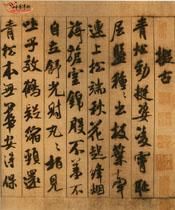 擬古
青松勁挺姿凌霄恥
屈盤種種出枝葉牽
連上松端秋花起絳烟
旖旎雲錦殷不羞不
自立舒光射丸丸柏見
吐子效鶴疑縮頸還
青松本無華安得保